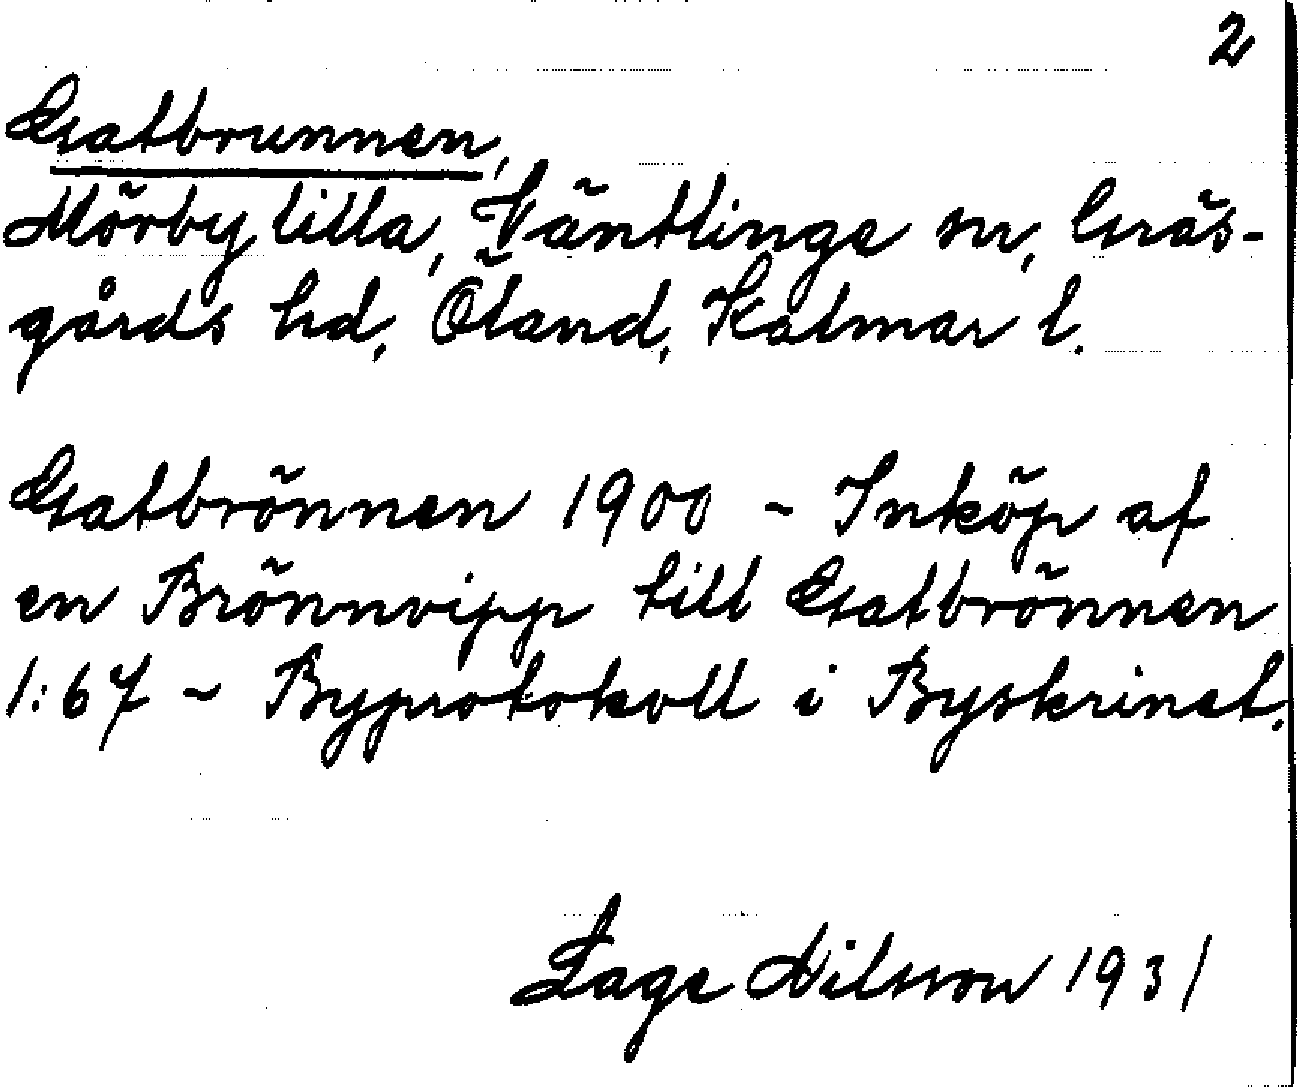 2
Gatbrunnen,
Mörby lilla, Väntlinge sn, Gräs-
gårds hd, Öland, Kalmar l.
Gatbrönnen 1900 - Inköp af
en Brönnvipp till Gatbrönnen
1:67 - Byprotokoll i Byskrinet.
Lage Nilsson 1931